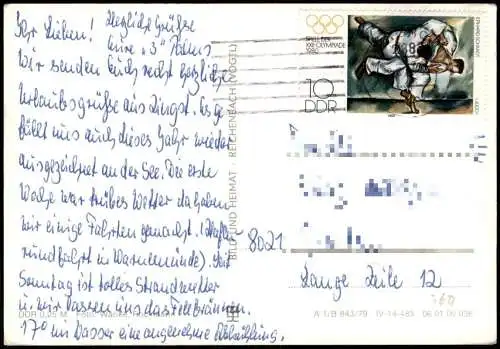 Ihr Lieben! Herzliche Grüsse
Eure "3" Adams
Wir senden Euch recht herzliche
Urlaubsgrüße aus Zingst. Es ge
fällt uns auch dieses Jahr wieder
ausgezeichnet an der See. Die erste
Woche war trübes Wetter da haben
wir einige Fahrten gemacht. (Hafen
rundfahrt in Warnemünde). Seit
Sonntag ist tolles Strandwetter
u. wir lassen uns das Fell bräunen.
17° im Wasser eine angenehme Abkühlung.
DDR 0,25 M Foto:
BILD UND HEIMAT REICHENBACH (VOGTL)
SPIELE DER
XXII. OLYMPIADE
1980
10
DDR
8021
Lange Zeile 12
A 1/B 843/79 IV-14-483 06 01 09 036